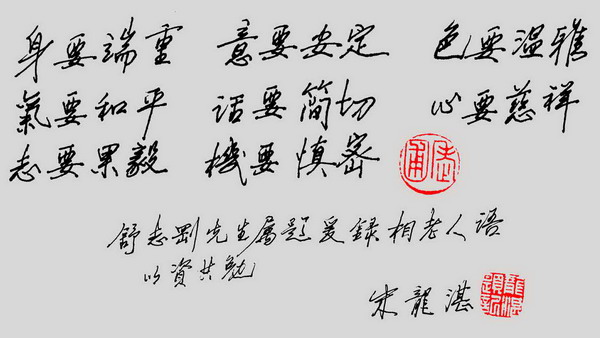 身要端重 意要安定 色要温雅
氣要和平 话要简切 心要慈祥
志要果毅 機要慎密
舒志剛先生属题爰録相老人语
以资共勉
宋龍湛